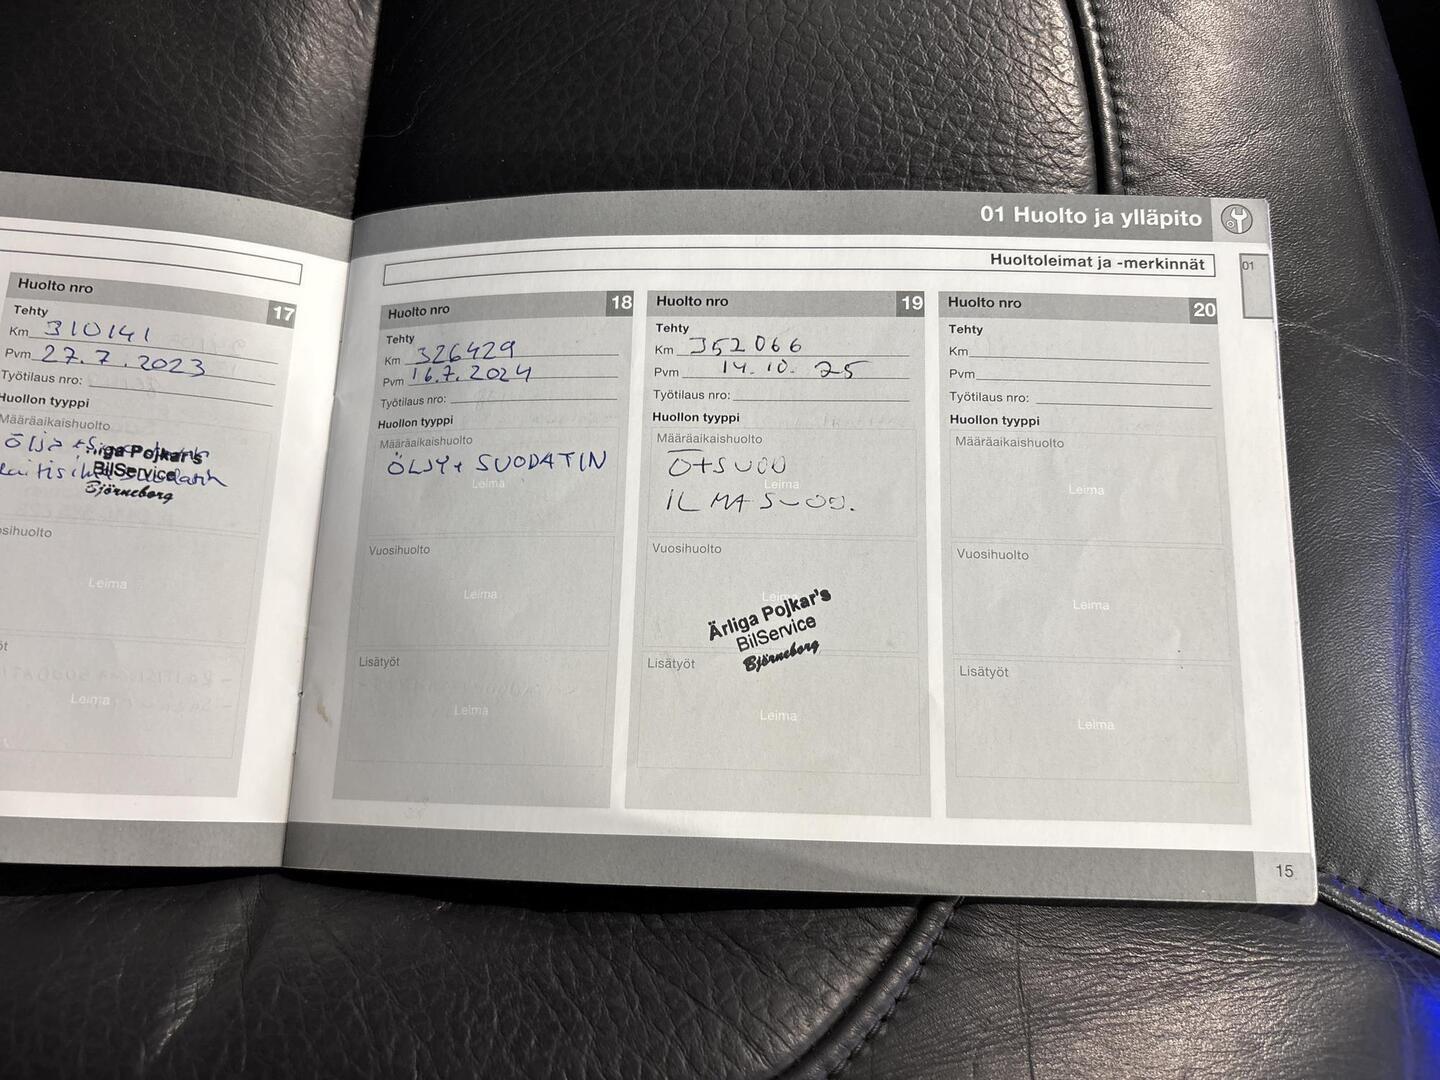 Huolto nro
17
Tehty
Km 310141
Pvm 27.7.2023
Työtilaus nro:
Huollon tyyppi
Määräaikaishuolto
Pojkar's
BilService
Björneborg
Leima
Leima
01 Huolto ja ylläpito
Huoltoleimat ja -merkinnät
01
Huolto nro
18
Tehty
Km 326429
Pvm 16.7.2024
Työtilaus nro:
Huollon tyyppi
Määräaikaishuolto
ÖLJY + SUODATIN
Leima
Vuosihuolto
Leima
Lisätyöt
Leima
Huolto nro
19
Tehty
Km 352066
Pvm 14.10.25
Työtilaus nro:
Huollon tyyppi
Määräaikaishuolto
Ö+SUOD
Leima
ILMASUOD.
Vuosihuolto
Leima
Ärliga Pojkar's
BilService
Björneborg
Lisätyöt
Leima
Huolto nro
20
Tehty
Km
Pvm
Työtilaus nro:
Huollon tyyppi
Määräaikaishuolto
Leima
Vuosihuolto
Leima
Lisätyöt
Leima
15